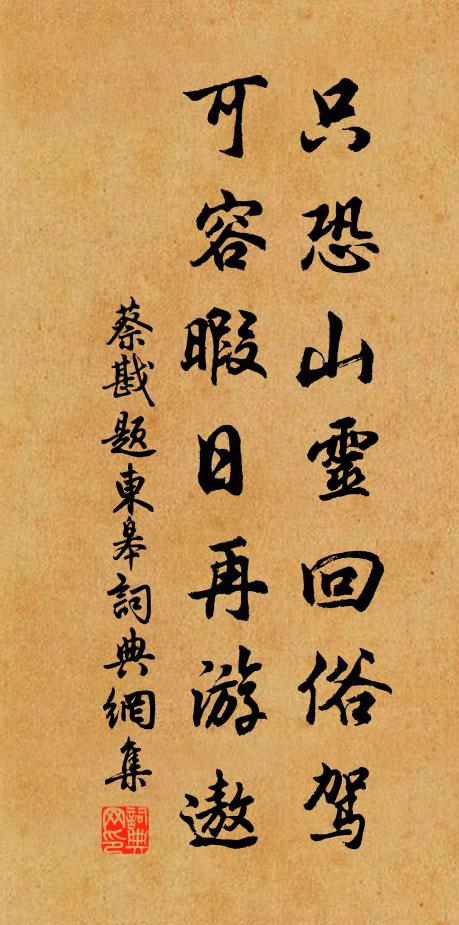 只恐山靈回俗駕
可容暇日再游遨
蔡戡題東皋詞典網集
詞典網印